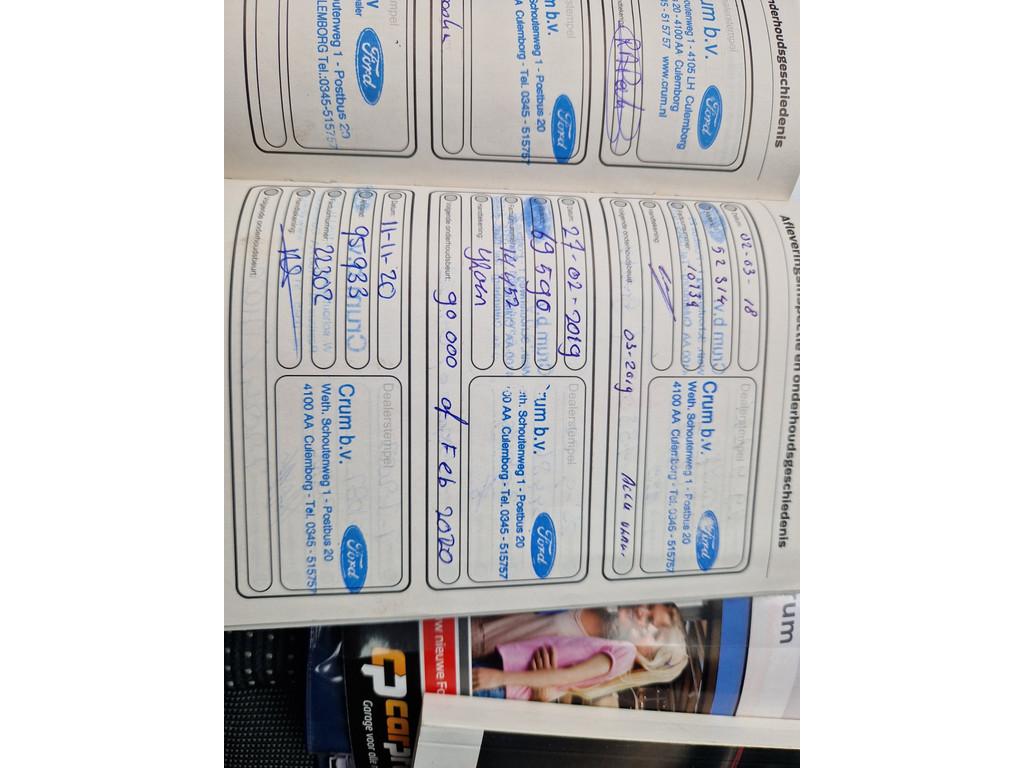 nderhoudsgeschiedenis
um b.v.
houtenweg 1 - 4105 LH Culemborg
20 - 4100 AA Culemborg
45 - 51 57 57 www.crum.nl
Ford
Dealerstempel
m b.v.
Schoutenweg 1 - Postbus 20
AA Culemborg - Tel. 0345 - 515757
Ford
outenweg 1 - Postbus 20
LEMBORG Tel.:0345-515757
Ford
Afleveringsinspectie en onderhoudsgeschiedenis
Datum: 02-03-18
52 314
Factuurnummer: 10734
Handtekening:
Volgende onderhoudsbeurt: 03-2019
Dealerstempel
Crum b.v.
Weth. Schoutenweg 1 - Postbus 20
4100 AA Culemborg - Tel. 0345 - 515757
Ford
Datum: 27-02-2019
69 590
Factuurnummer: 14452
Handtekening:
Volgende onderhoudsbeurt: 90 000 of Feb 2020
Dealerstempel
rum b.v.
th. Schoutenweg 1 - Postbus 20
00 AA Culemborg - Tel. 0345 - 515757
Ford
Datum: 11-11-20
95.933
Factuurnummer: 22302
Handtekening:
Volgende onderhoudsbeurt:
Dealerstempel
Crum b.v.
Weth. Schoutenweg 1 - Postbus 20
4100 AA Culemborg - Tel. 0345 - 515757
Ford
rum
w nieuwe Fo
carpr
Garage voor alle